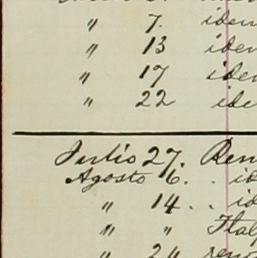 " 7. iden
" 13 iden
" 17 iden
" 22 ide
Julio 27. Ren
Agosto 6. . . id
" 14. . . id
" " Ital
" 24 reno